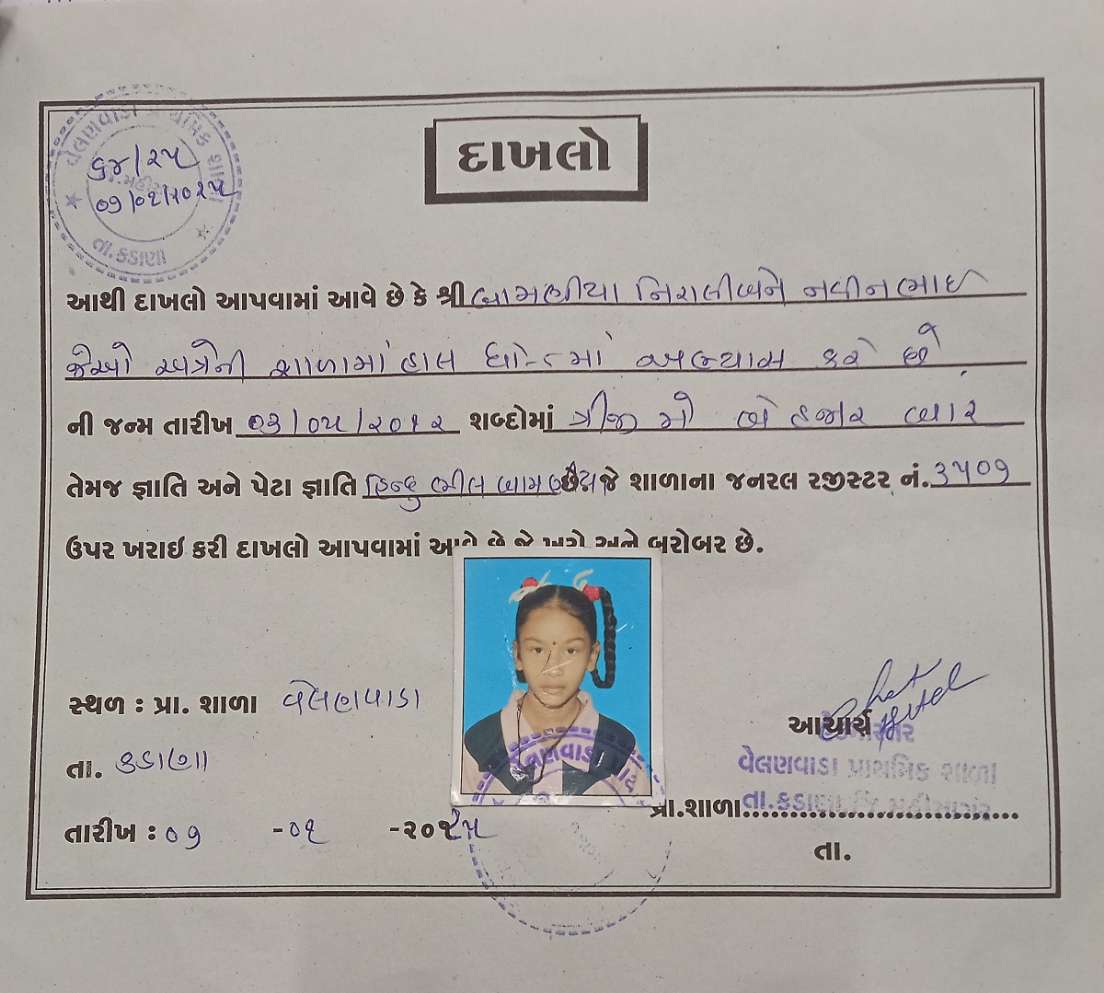 વેલણવાડા પ્રાથમિક શાળા
૬૪/૨૫
૦૧/૦૨/૨૦૨૫
તા.કડાણા
દાખલો
આથી દાખલો આપવામાં આવે છે કે શ્રી બામણીયા નિરાલીબેન નવીનભાઈ
જેઓ અત્રેની શાળામાં હાલ ધો-૮માં અભ્યાસ કરે છે
ની જન્મ તારીખ ૦૩/૦૫/૨૦૧૨ શબ્દોમાં ત્રીજી મે બે હજાર બાર
તેમજ જ્ઞાતિ અને પેટા જ્ઞાતિ હિન્દુ ભીલ છે. જે શાળાના જનરલ રજીસ્ટર નં. ૩૫૦૧
ઉપર ખરાઇ કરી દાખલો આપવામાં આવે છે જે ખરો અને બરોબર છે.
સ્થળ : પ્રા. શાળા વેલણવાડા
આચાર્ય
વેલણવાડા પ્રાથમિક શાળા
તા. કડાણા
પ્રા.શાળા તા.કડાણા જિ.મહીસાગર
તારીખ : ૦૧ -૦૨ -૨૦૨૫
તા.